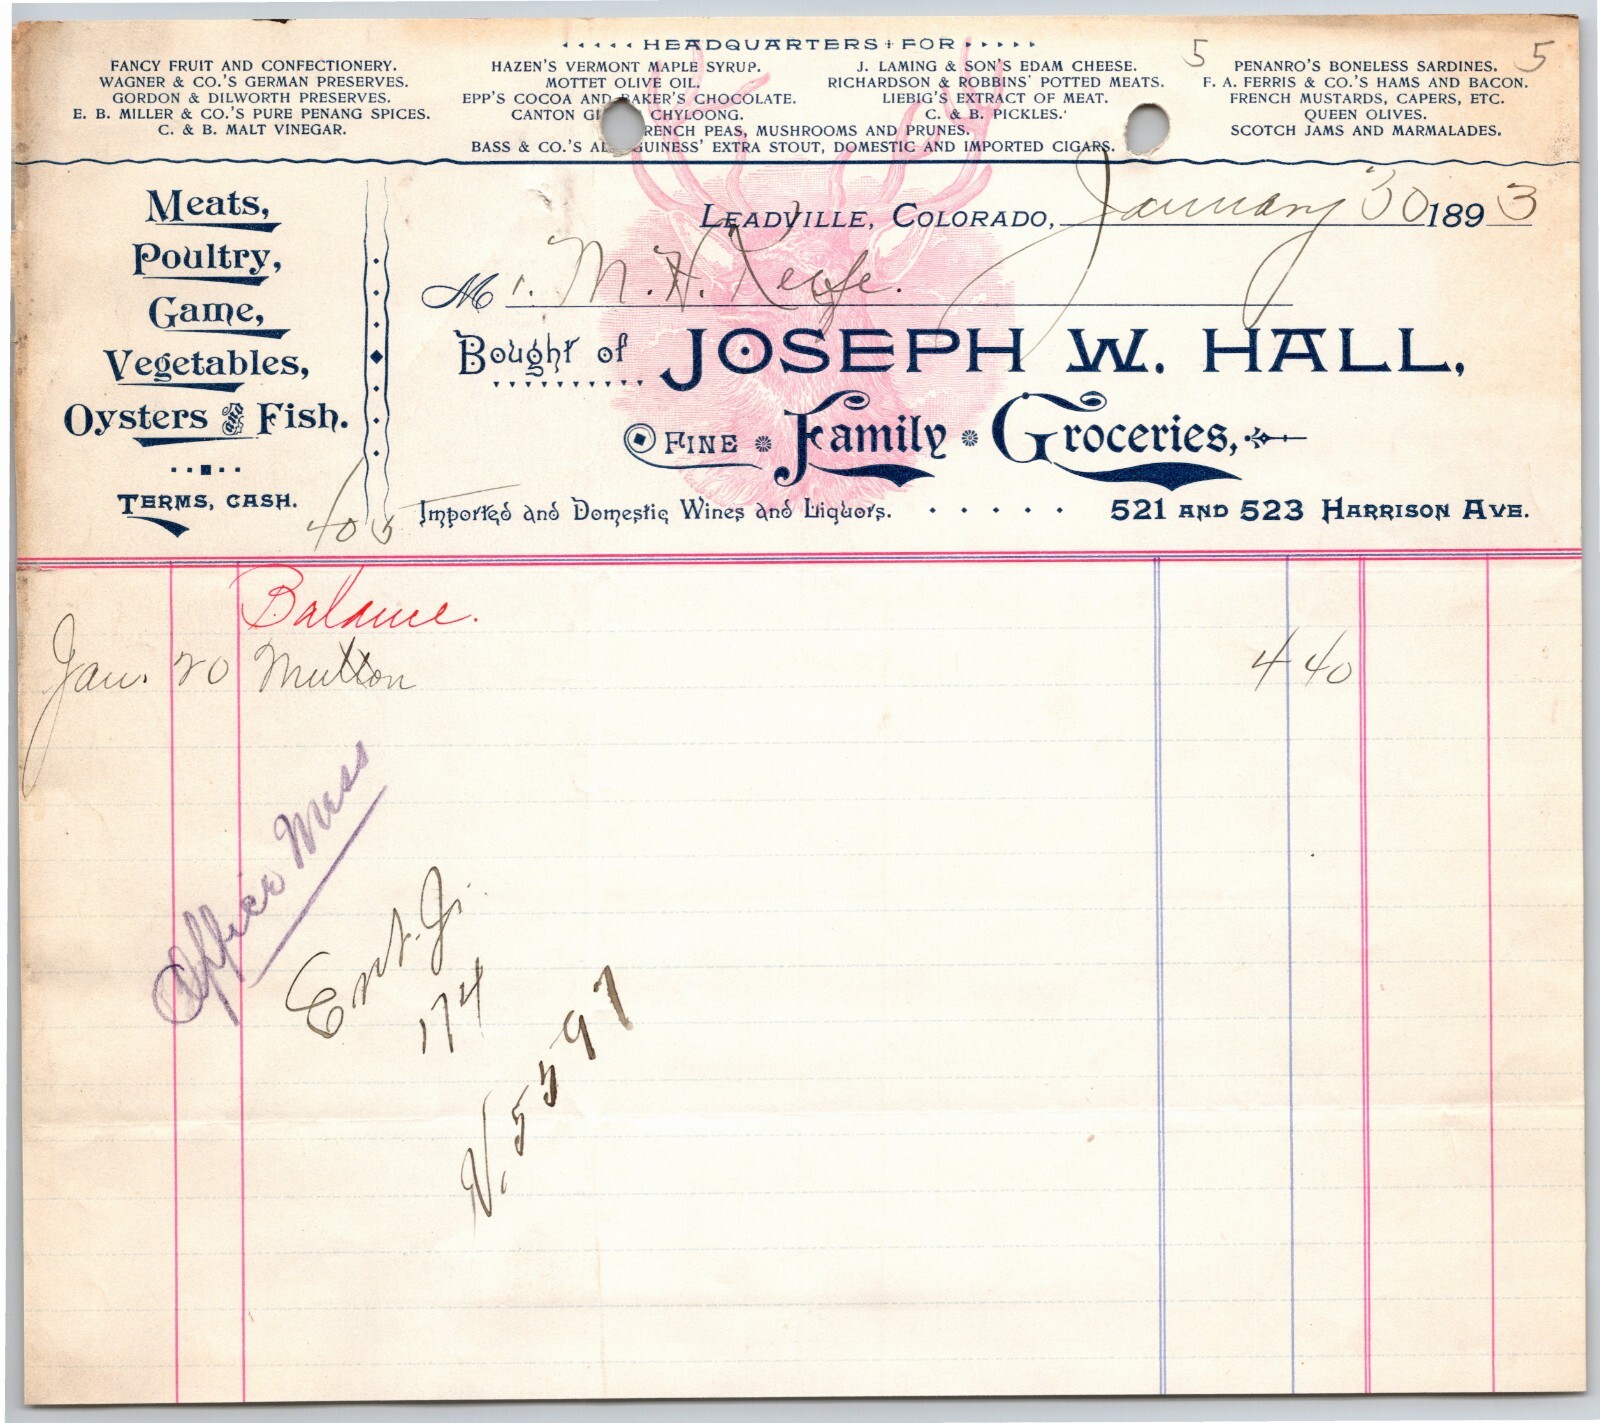 HEADQUARTERS FOR
5 5
FANCY FRUIT AND CONFECTIONERY.
WAGNER & CO.'S GERMAN PRESERVES.
GORDON & DILWORTH PRESERVES.
E. B. MILLER & CO.'S PURE PENANG SPICES.
C. & B. MALT VINEGAR.
HAZEN'S VERMONT MAPLE SYRUP.
MOTTET OLIVE OIL.
EPP'S COCOA AND BAKER'S CHOCOLATE.
CANTON CHYLOONG.
J. LAMING & SON'S EDAM CHEESE.
RICHARDSON & ROBBINS' POTTED MEATS.
LIEBIG'S EXTRACT OF MEAT.
C. & B. PICKLES.
FRENCH PEAS, MUSHROOMS AND PRUNES.
BASS & CO.'S GUINESS' EXTRA STOUT, DOMESTIC AND IMPORTED CIGARS.
PENANRO'S BONELESS SARDINES.
F. A. FERRIS & CO.'S HAMS AND BACON.
FRENCH MUSTARDS, CAPERS, ETC.
QUEEN OLIVES.
SCOTCH JAMS AND MARMALADES.
Meats,
Poultry,
Game,
Vegetables,
Oysters & Fish.
TERMS, CASH.
405
LEADVILLE, COLORADO, January 30 1893
Mr. M. H. Keefe.
Bought of JOSEPH W. HALL,
FINE Family Groceries,
Imported and Domestic Wines and Liquors. 521 AND 523 HARRISON AVE.
Balance.
Jan. 20 Mutton 4 40
Office Mess
Ent. J.
174
N. 5597